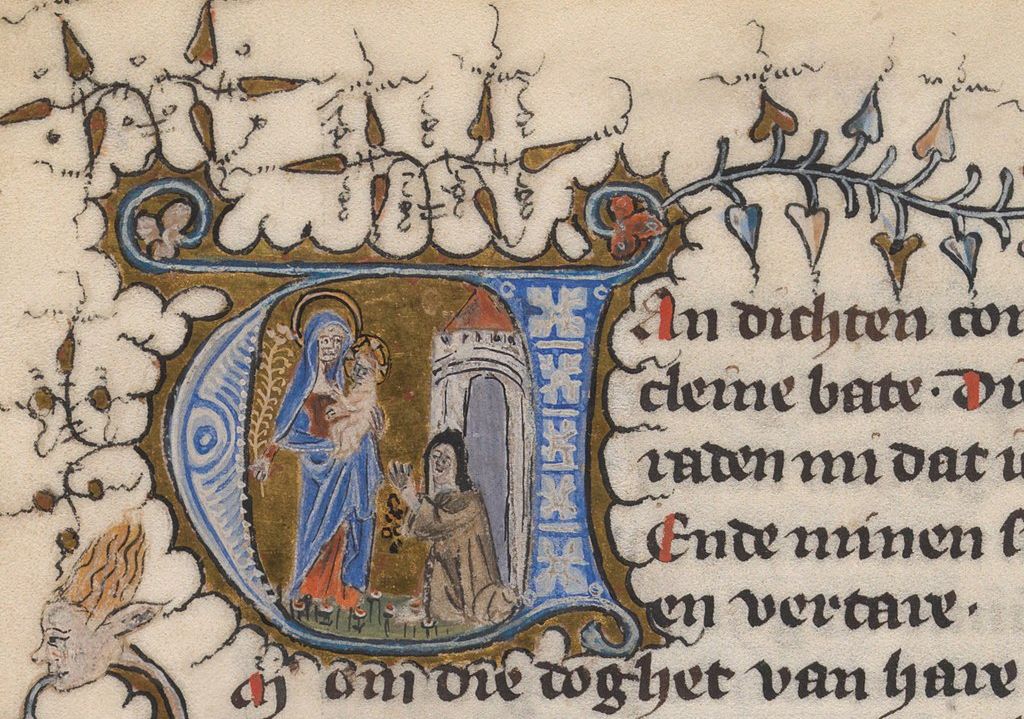 VAn dichten
cleine bate. Di
raden mi dat
Ende minen
en vertare.
om die doghet van hare